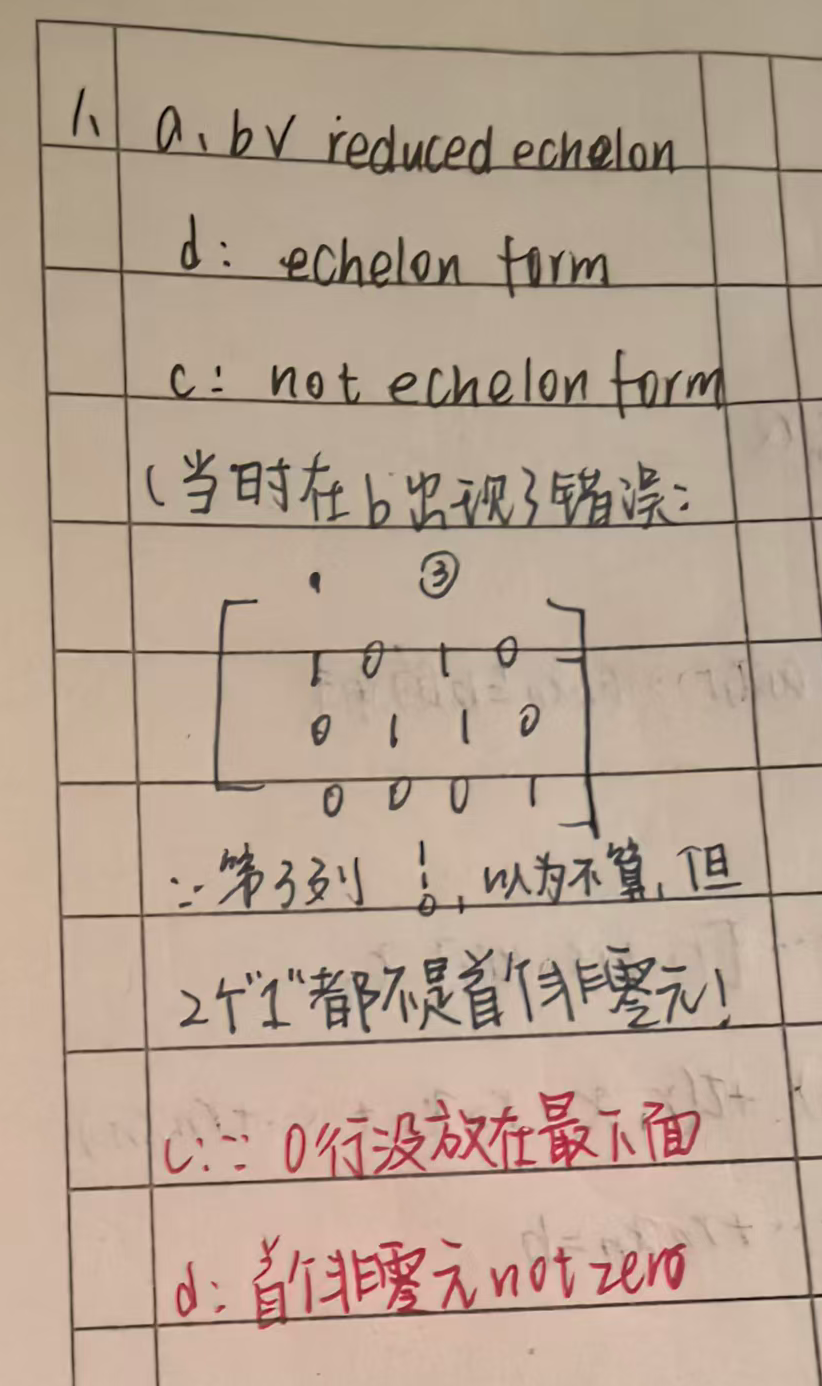 1、 a、b√ reduced echelon
d: echelon form
c: not echelon form
(当时在b出现了错误:
③
1 0 1 0
0 1 1 0
0 0 0 1
∵第3列 1 1 0, 以为不算,但
2个"1"都不是首个非零元!
c:∵ 0行没放在最下面
d: 首个非零元 not zero